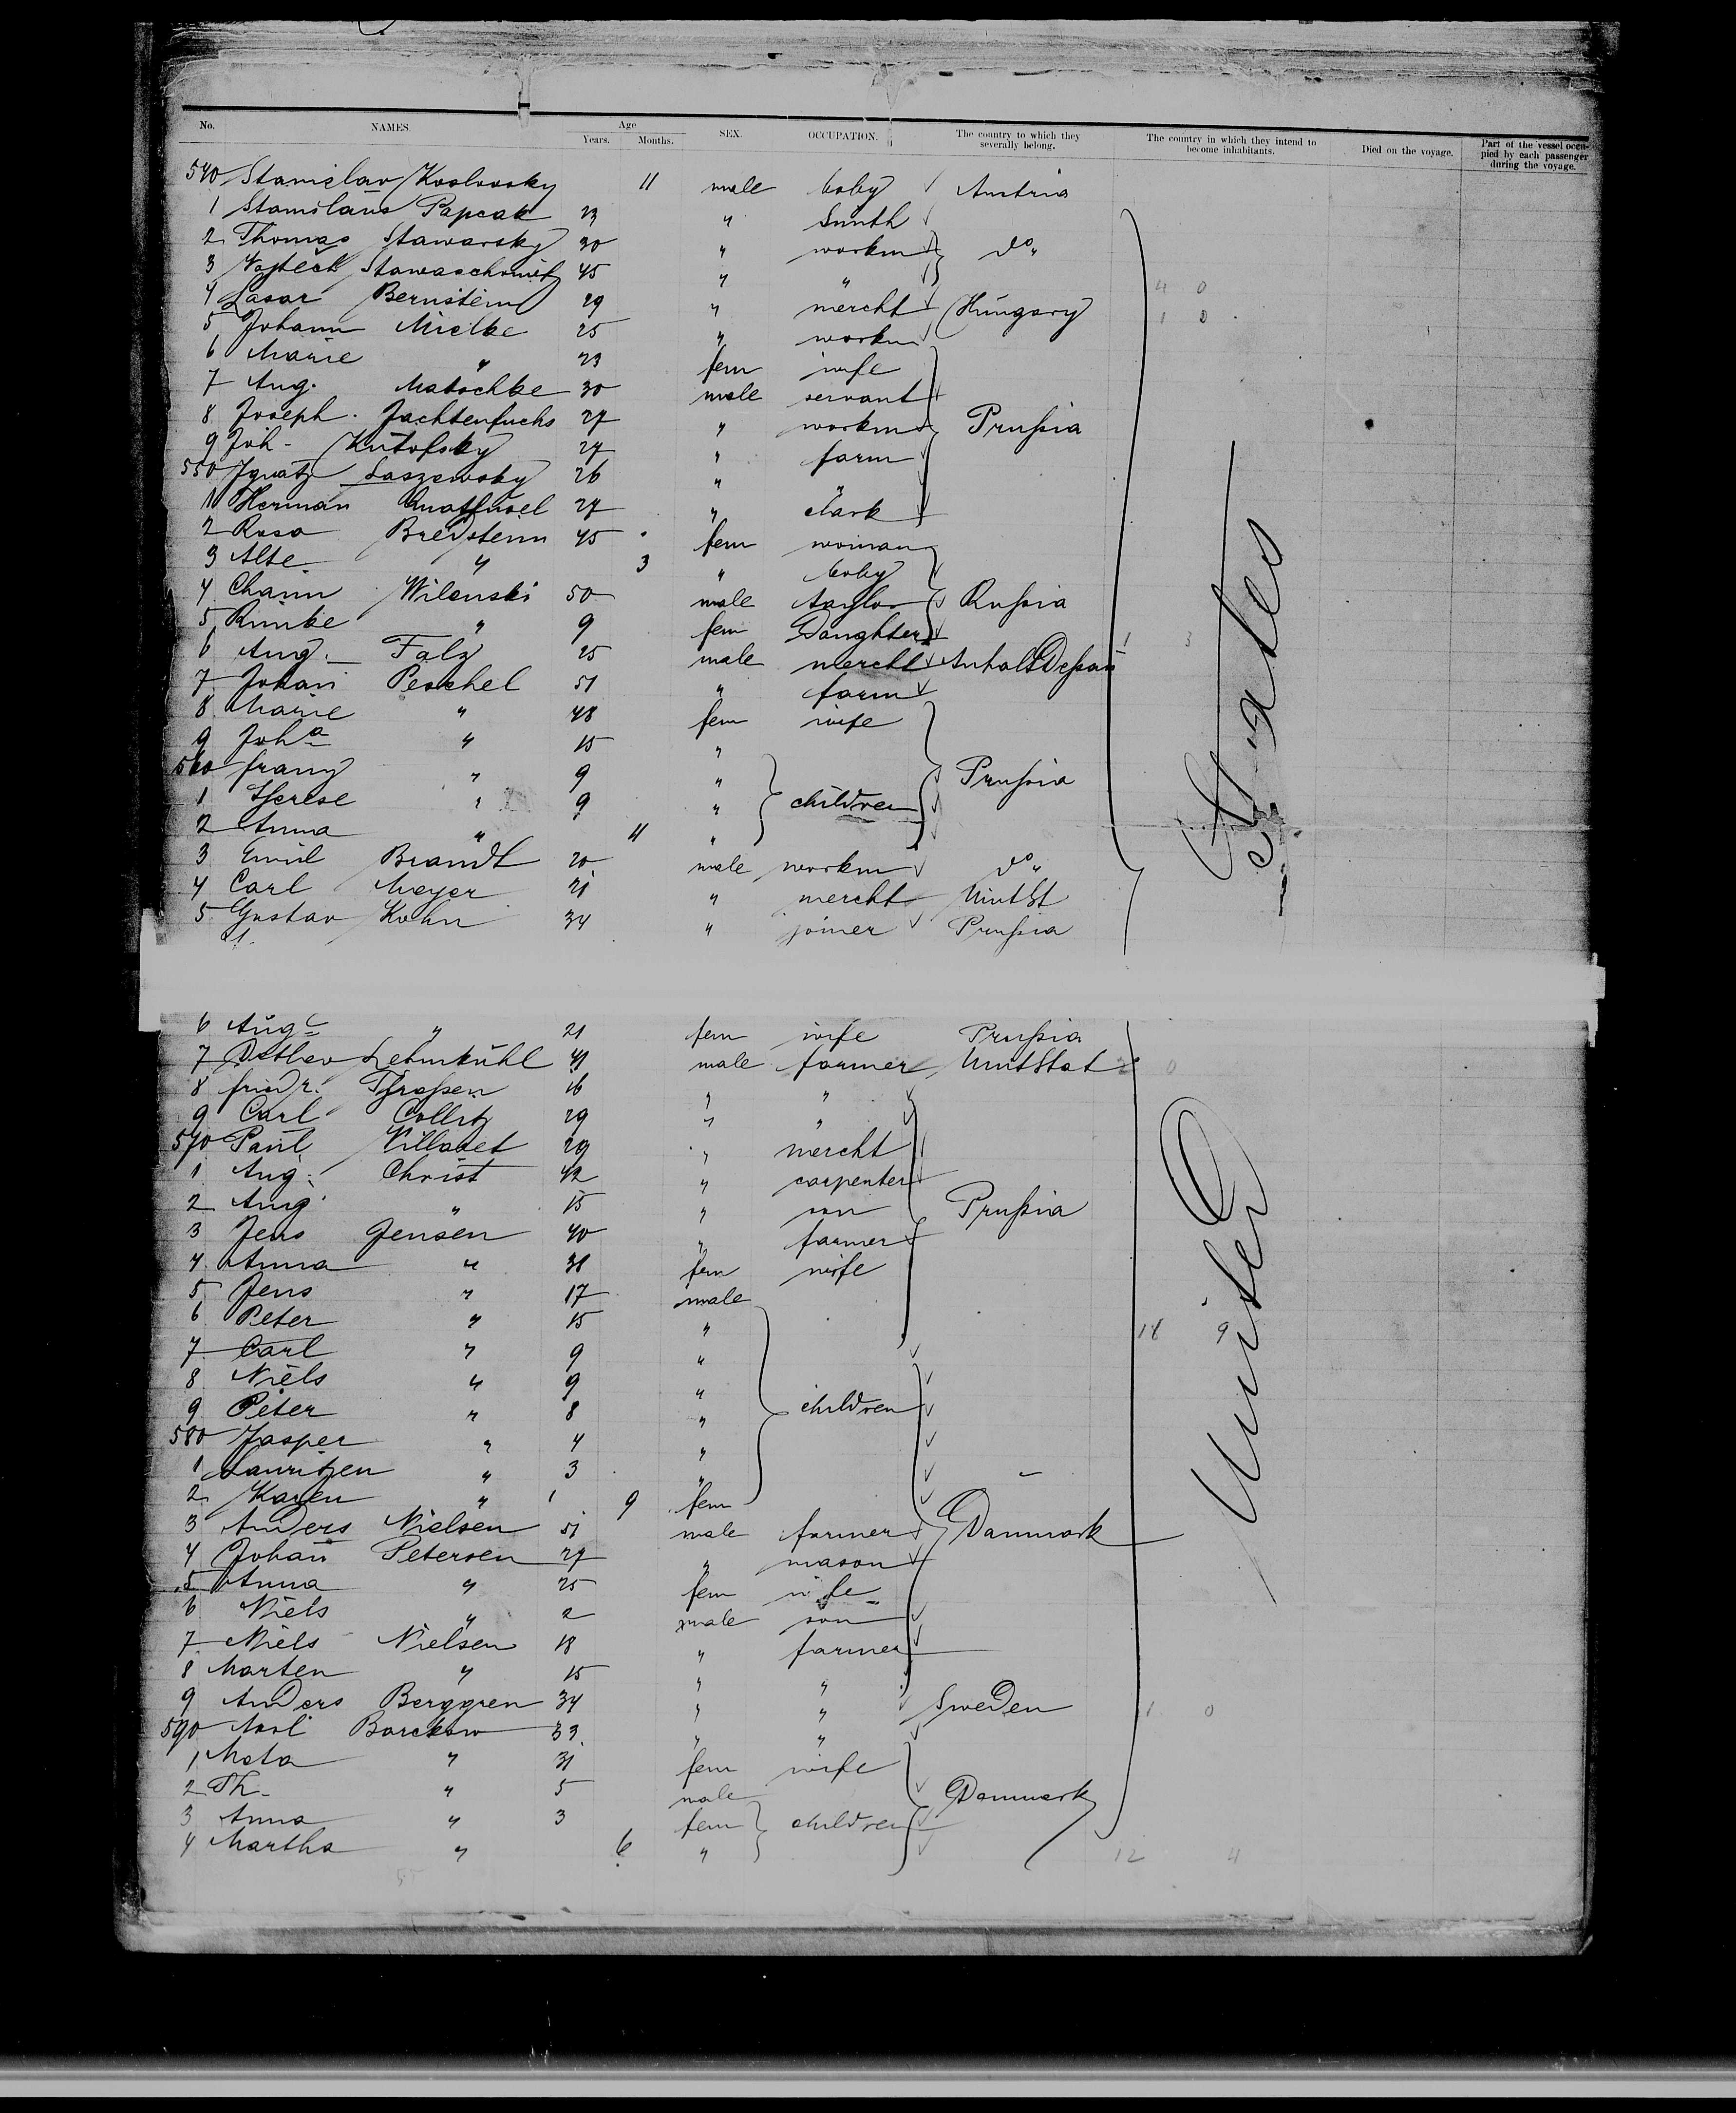 No. NAMES. Age Years. Months. SEX. OCCUPATION. The country to which they severally belong. The country in which they intend to become inhabitants. Died on the voyage. Part of the vessel occupied by each passenger during the voyage.
540 Stanislav Koslovsky 11 male baby Austria
1 Stanislaus Papcak 23 " Smith
2 Thomas Stawarsky 30 " workm do "
3 Wojtech 45 " "
4 Lasar Bernstein 29 " mercht Hungary
5 Johann Mielke 25 " workm
6 Marie " 23 fem wife
7 Aug. Matschke 30 male servant
8 Joseph Jachtenfuchs 27 " workm Prußia
9 Joh. Kutofsky 27 " farm
550 Ignatz Laszewsky 26 " "
1 Herman 27 " clark
2 Rosa Bredstein 45 fem woman
3 Alte " 3 " baby
4 Chaim Wilenski 50 male taylor Rußia
5 Rimke " 9 fem Daughter
6 Aug. Falz 25 male mercht Anhalt Deßau
7 Johan Peschel 51 " farm
8 Marie " 48 fem wife
9 Joha " 15 "
560 franz " 9 " Prußia
1 Therese " 9 " children
2 Anna " 11 "
3 Emil Brandt 20 male workm do "
4 Carl Meyer 21 " mercht UnitSt
5 Gustav Kohn 34 " joiner Prußia
States
6 Auge " 21 fem wife Prußia
7 Detlev Lehmkuhl 41 male farmer UnitStat
8 friedr. Thaßen 16 " "
9 Carl Collitz 29 " "
570 Paul Villaret 29 " mercht
1 Aug. Christ 42 " carpenter
2 Aug " 15 " son Prußia
3 Jens Jensen 40 " farmer
4 Anna " 38 fem wife
5 Jens " 17 male
6 Peter " 15 "
7 Carl " 9 "
8 Niels " 9 "
9 Peter " 8 " children
580 Jasper " 4 "
1 Lauritzen " 3 "
2 Karen " 1 9 fem
3 Anders Nielsen 51 male farmer Danmark
4 Johan Petersen 27 " mason
5 Anna " 25 fem wife
6 Niels " 2 male son
7 Niels Nielsen 18 " farmer
8 Marten " 15 " "
9 Anders Berggren 34 " " Sweden
590 Axel Barckow 33 " "
1 Meta " 31 fem wife
2 Th. " 5 male Danmark
3 Anna " 3 fem children
4 Martha " 6 "
United